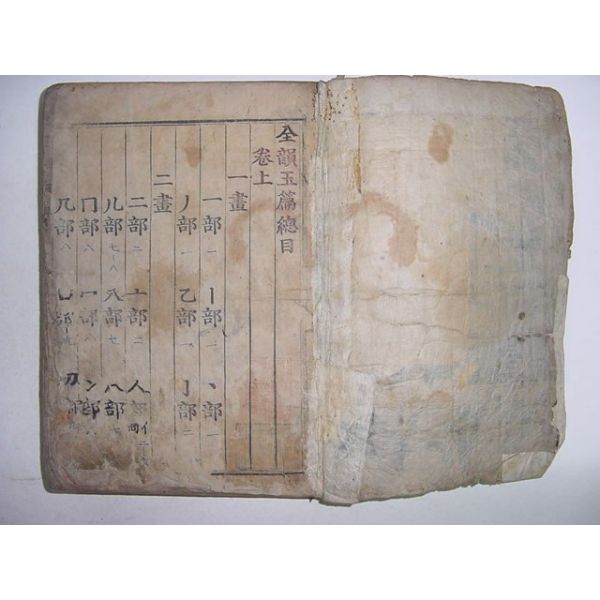 全韻玉篇總目
卷上
一畫
一部一 丨部一 丶部一
丿部一 乙部一 亅部二
二畫
二部二 亠部二 人部
儿部七八 入部七 八部
冂部八 冖部八 冫部
几部八